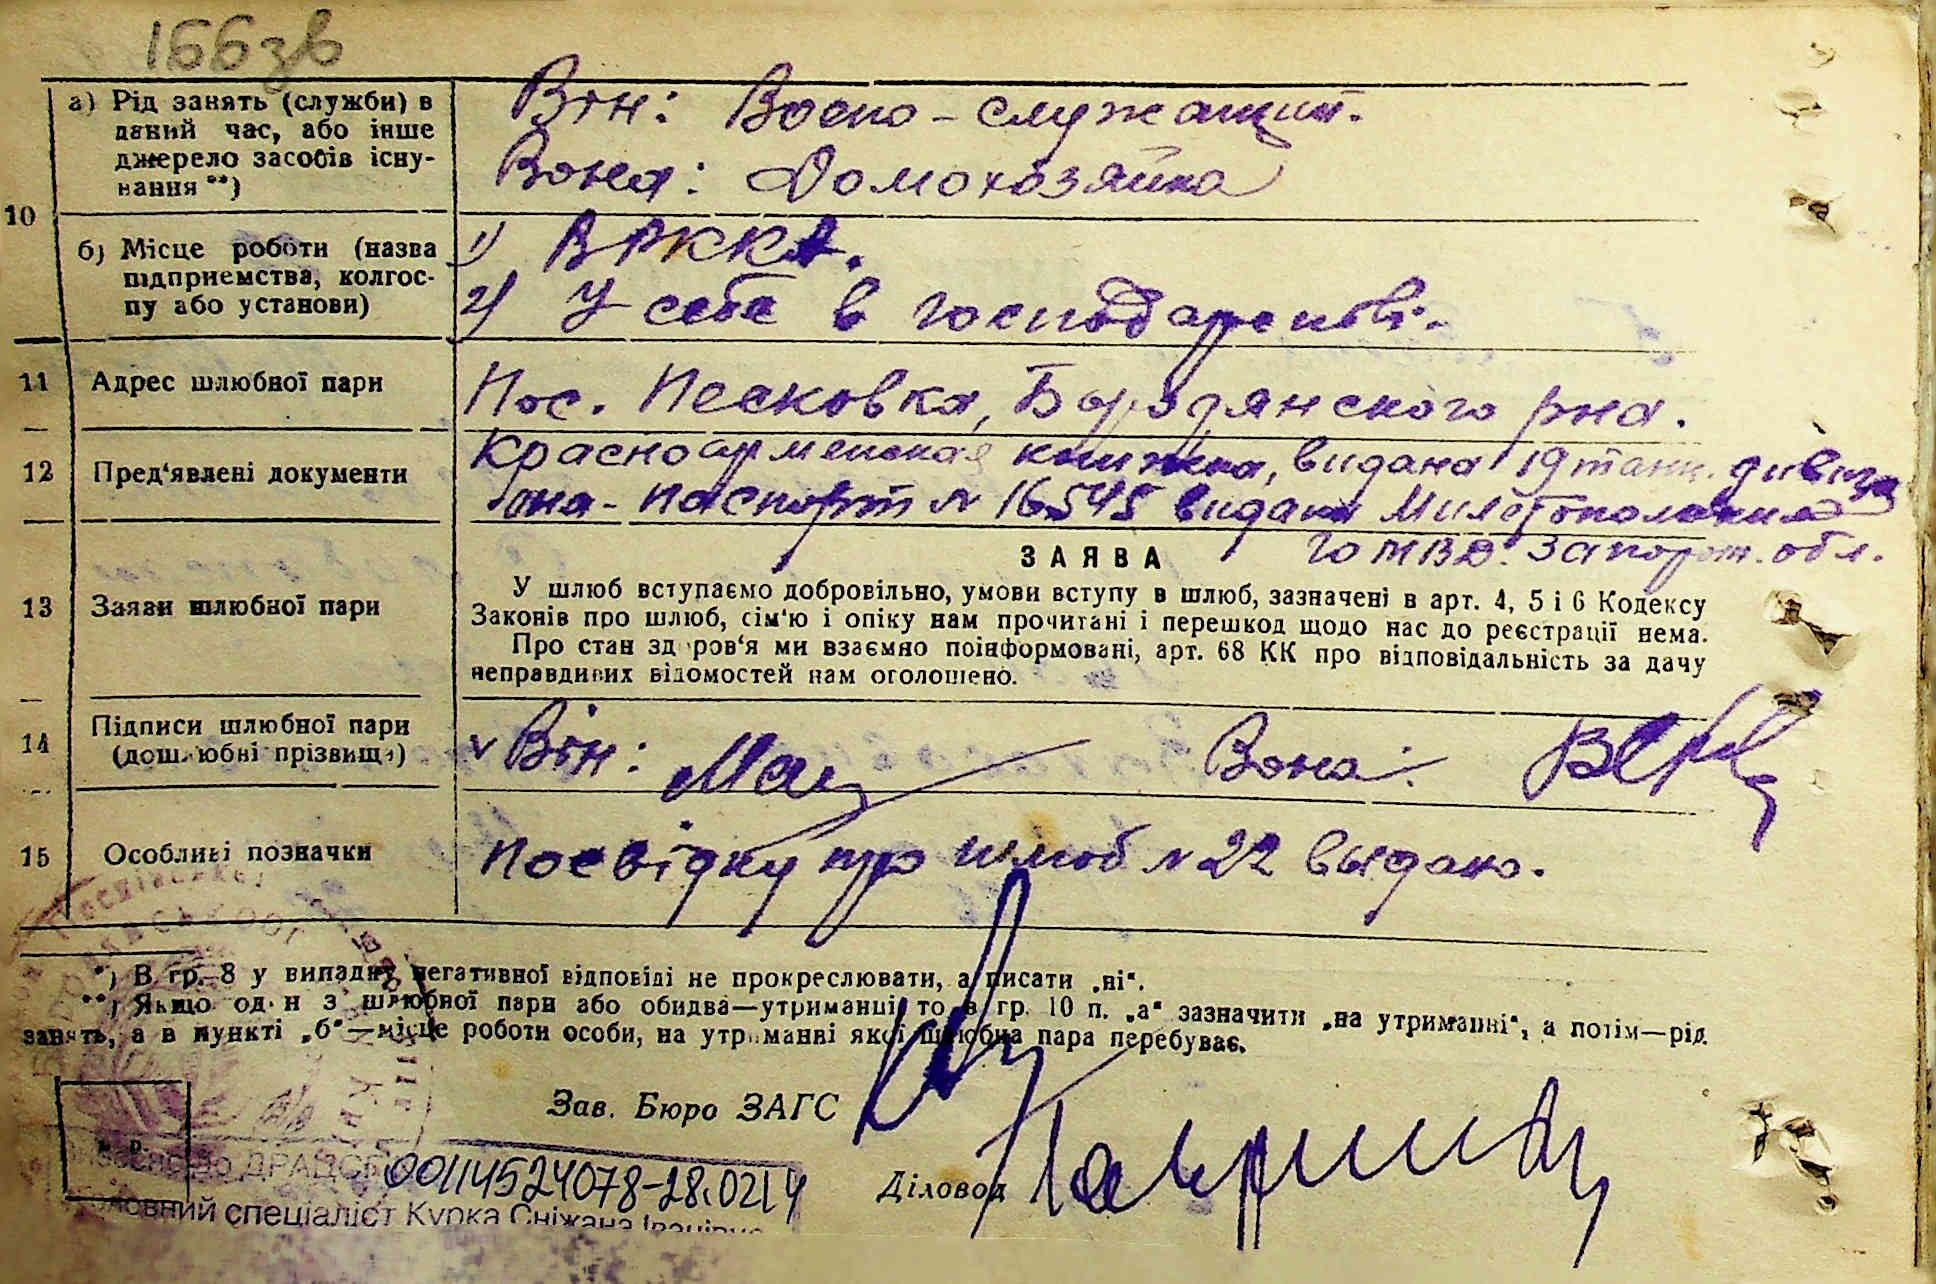 166зв
а) Рід занять (служби) в
даний час, або інше
джерело засобів існу-
вання **)
Він: Воено-служащий.
Вона: Домохозяйка
10
б) Місце роботи (назва
підприемства, колгос-
пу або установи)
1) В РККА.
2) У себе в господарстві.
11 Адрес шлюбної пари
Пос. Песковка, Бородянского рна.
12 Пред'явлені документи
Красноармейская книжка, видана 19 танк. дивиз
она - паспорт № 16545 видан
го МВД. Запорож. обл.
ЗАЯВА
13 Заяви шлюбної пари
У шлюб вступаємо добровільно, умови вступу в шлюб, зазначені в арт. 4, 5 і 6 Кодексу
Законів про шлюб, сім'ю і опіку нам прочитані і перешкод щодо нас до реєстрації нема.
Про стан здоров'я ми взаємно поінформовані, арт. 68 КК про відповідальність за дачу
неправдивих відомостей нам оголошено.
14 Підписи шлюбної пари
(дошлюбні прізвища)
v Він: Вона:
15 Особливі позначки
Посвідку про шлюб № 22 выдано.
*) В гр. 8 у випадку негативної відповіді не прокреслювати, а писати „ні“.
**) Якщо один з шлюбної пари або обидва—утриманці, то в гр. 10 п. „а“ зазначити „на утриманні“, а потім—рід
занять, а в пункті „б“—місце роботи особи, на утриманні якої шлюбна пара перебуває.
Зав. Бюро ЗАГС
Діловод
ДРАЦС
00114524078-28.02.14
Головний спеціаліст Курка Сніжана